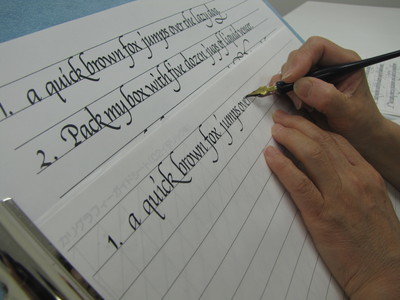 1. a quick brown fox jumps over the lazy dog.
2. Pack my box with five dozen jugs of liquid
1. a quick brown fox jumps ove